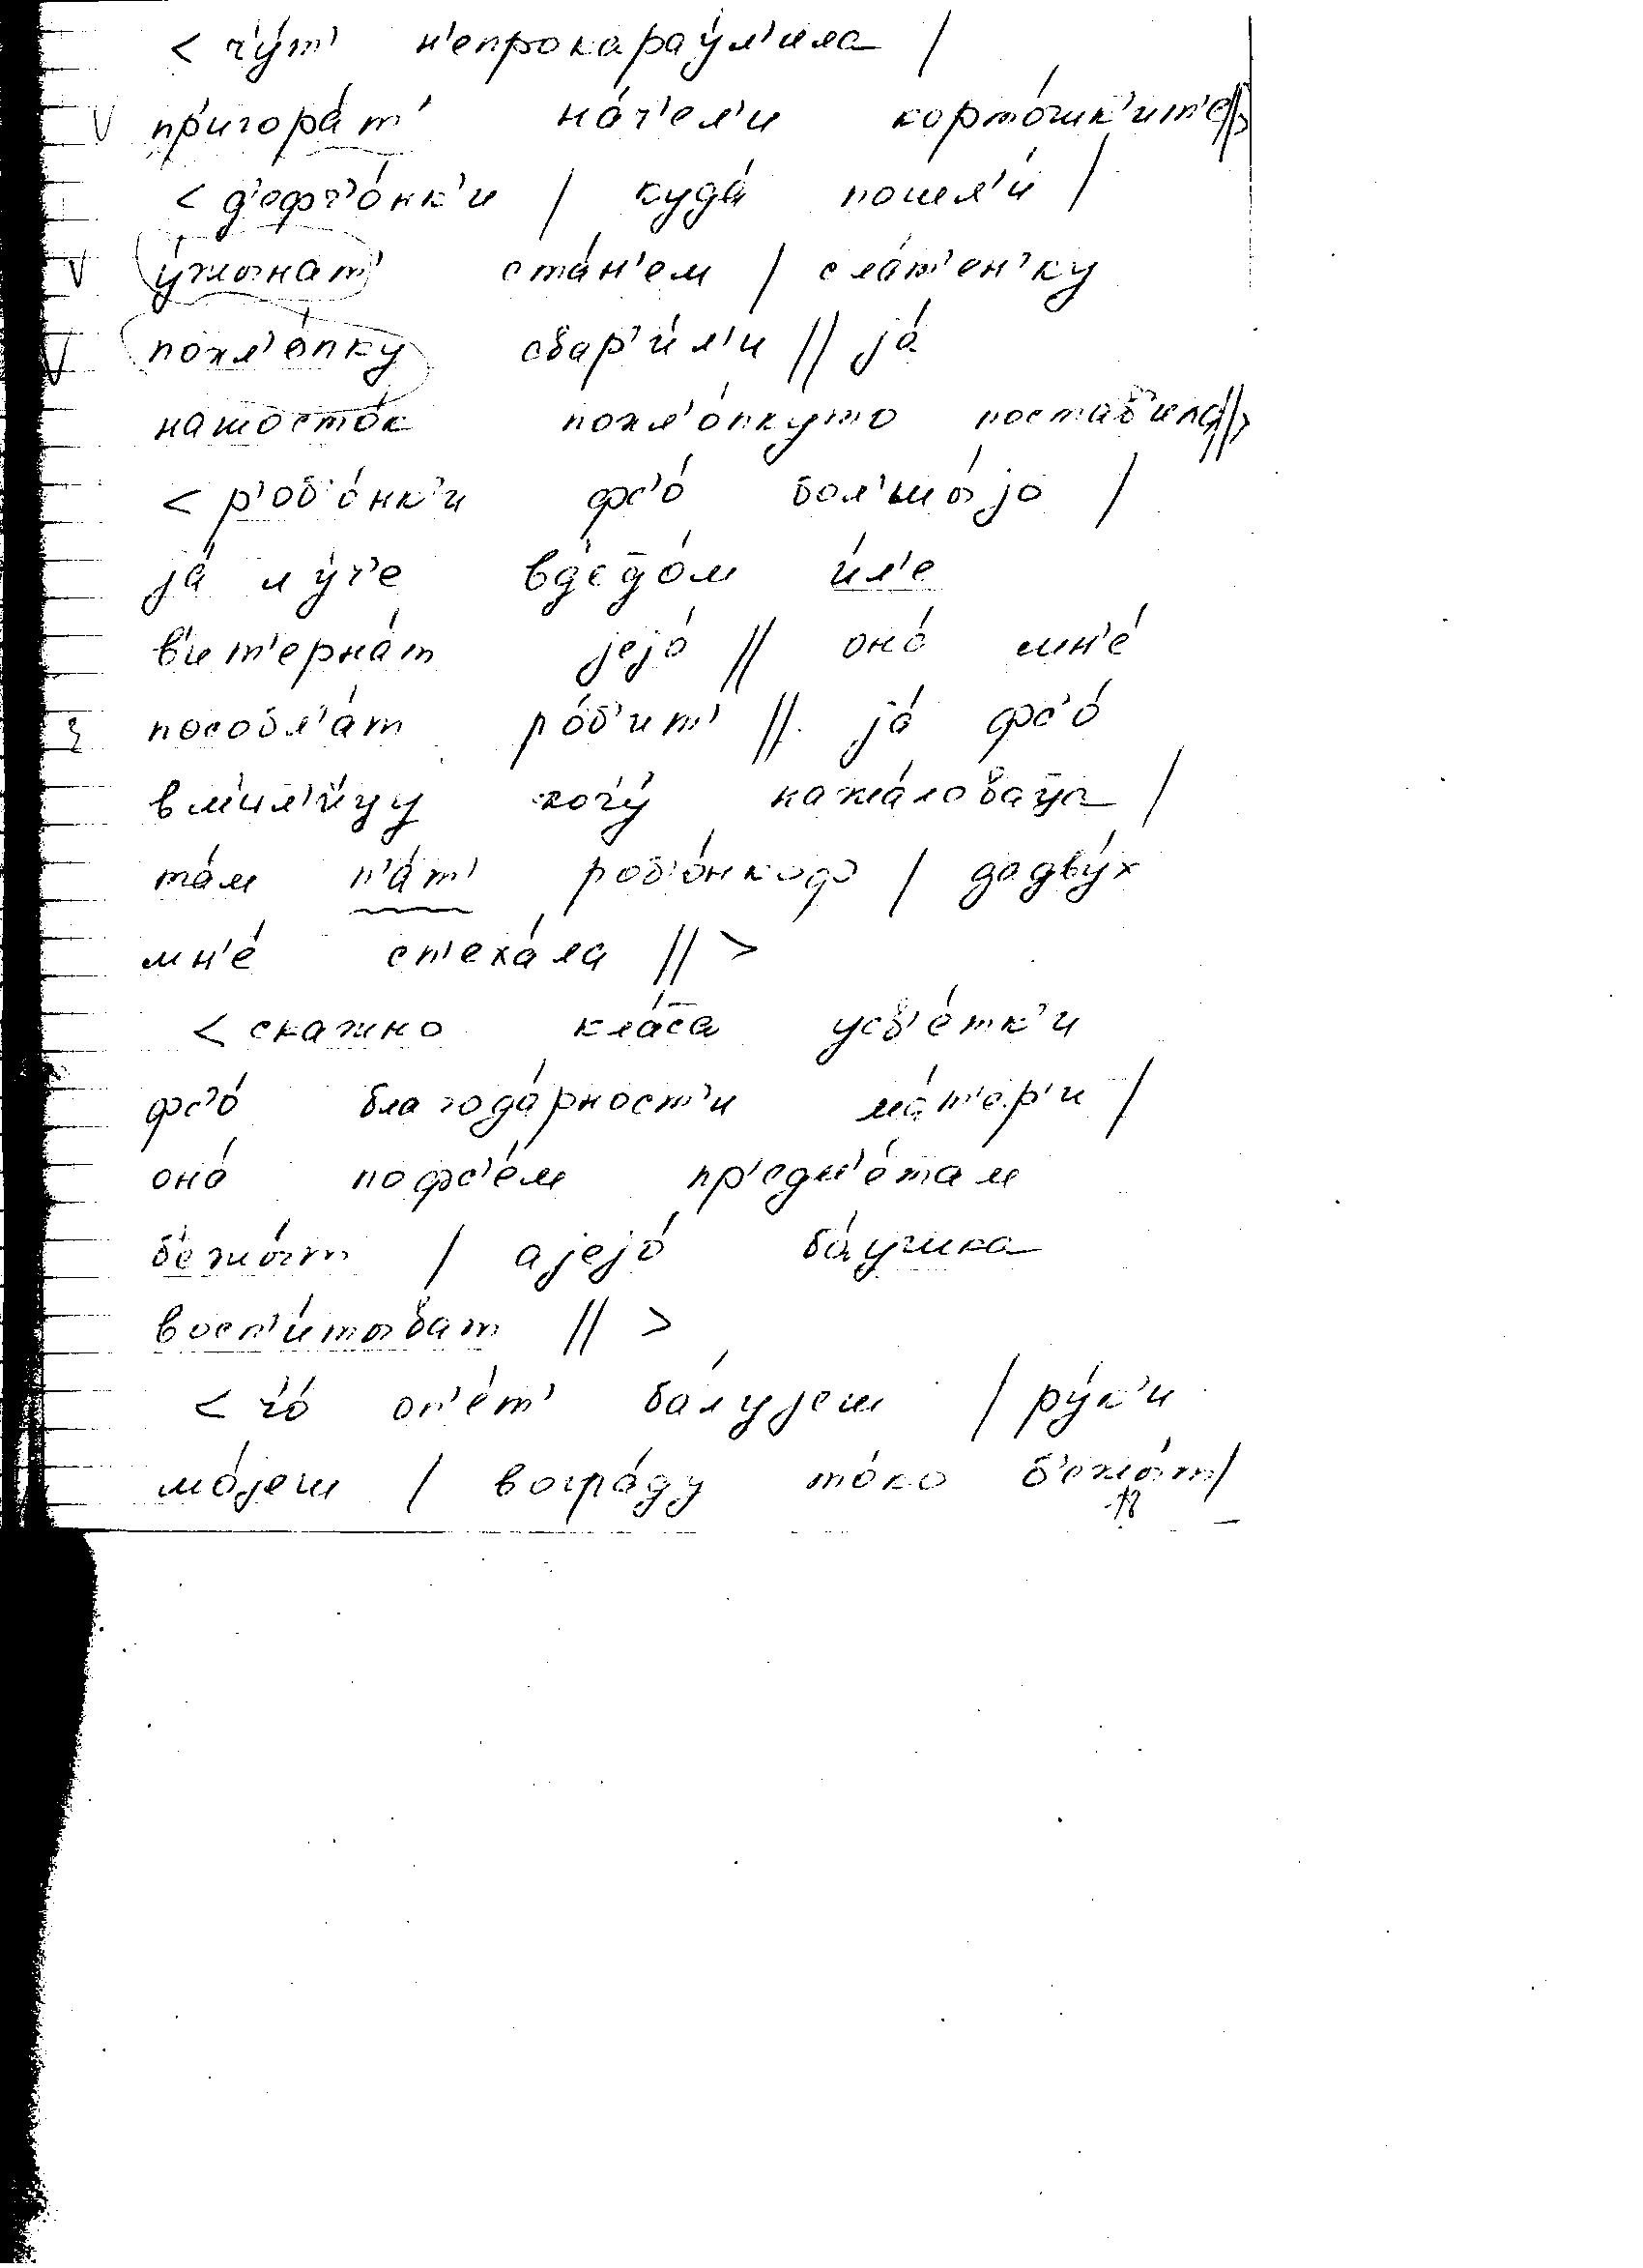 < ч'у́т' н'епрокарау́л'ила /
пригора́т' на́ч'ел'и корто́шк'ит'е //>
< д'ефч'о́нк'и / куда́ пошл'и́ /
у́жынат' ста́н'ем / сла́т'ен'ку
похл'о́пку свар'и́л'и // jа́
нашосто́к похл'о́пкуто постав'ила //>
< р'об'о́нк'и фс'о́ бол'шы́jо /
jа́ лу́ч'е вд'едо́м и́л'е
в'ит'ерна́т jejо́ // она́ мн'е́
пособл'а́т ро́б'ит' // jа́ фс'о́
вм'ил'и́цу хоч'у́ нажа́ловаца /
та́м п'а́т' роб'о́нкоф / дадву́х
мн'е́ сп'еха́ла // >
< скажно кла́са усв'е́тк'и
фс'о́ благода́рност'и ма́т'ер'и /
она́ пофс'е́м пр'едм'е́там
б'ежы́т / аjejо́ ба́ушка
восп'и́тыват // >
< ч'о́ оп'е́т' ба́луjеш / ру́к'и
мо́jеш / вогра́ду то́ко б'ежы́т /